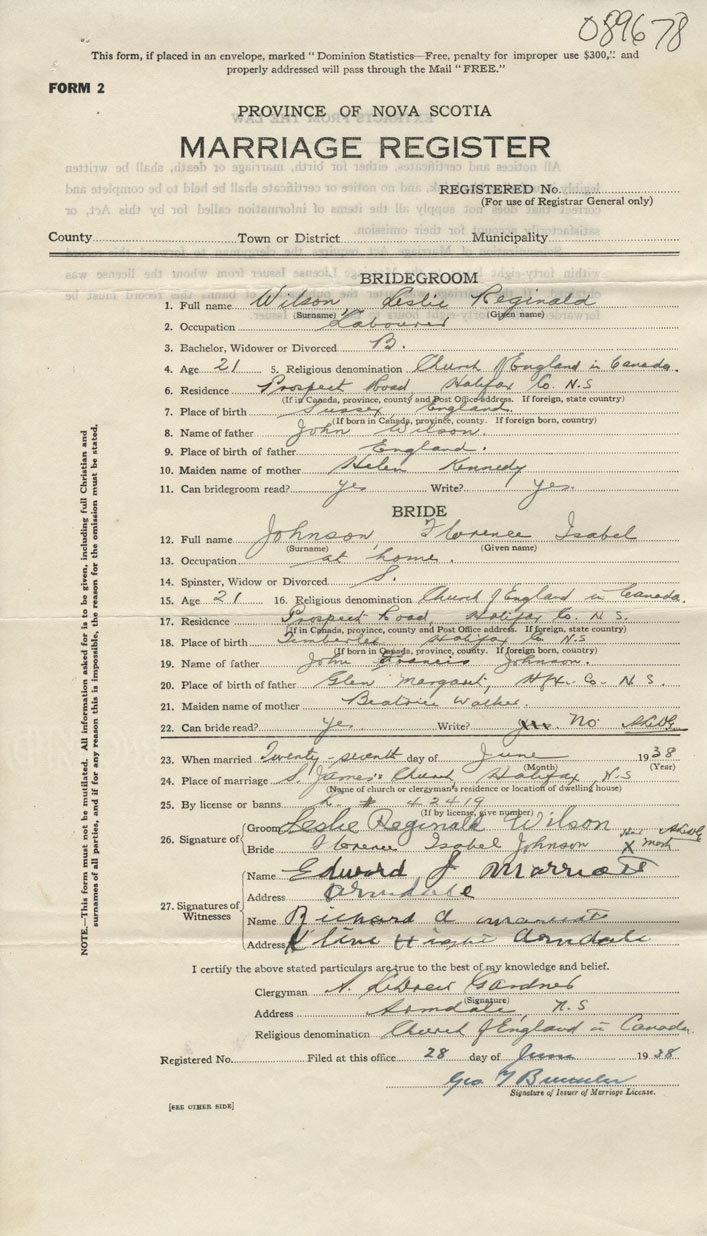 089678
This form, if placed in an envelope, marked "Dominion Statistics—Free, penalty for improper use $300," and
properly addressed will pass through the Mail "FREE."
FORM 2
PROVINCE OF NOVA SCOTIA
MARRIAGE REGISTER
REGISTERED No.
(For use of Registrar General only)
County Town or District Municipality
BRIDEGROOM
1. Full name Wilson Leslie Reginald
(Surname) (Given name)
2. Occupation Labourer
3. Bachelor, Widower or Divorced B.
4. Age 21 5. Religious denomination Church of England in Canada.
6. Residence Prospect Road, Halifax Co. N.S
(If in Canada, province, county and Post Office address. If foreign, state country)
7. Place of birth Sussex, England
(If born in Canada, province, county. If foreign born, country)
8. Name of father John Wilson.
9. Place of birth of father England.
10. Maiden name of mother Helen Kennedy
11. Can bridegroom read? Yes Write? Yes.
BRIDE
12. Full name Johnson Florence Isabel
(Surname) (Given name)
13. Occupation at home.
14. Spinster, Widow or Divorced S.
15. Age 21 16. Religious denomination Church of England in Canada.
17. Residence Prospect Road, Halifax Co. N.S.
(If in Canada, province, county and Post Office address. If foreign, state country)
18. Place of birth Timberlea Halifax Co. N.S
(If born in Canada, province, county. If foreign born, country)
19. Name of father John Francis Johnson.
20. Place of birth of father Glen Margaret, Hfx. Co. N.S.
21. Maiden name of mother Beatrice Walker.
22. Can bride read? Yes Write? No
23. When married Twenty-seventh day of June 1938
(Month) (Year)
24. Place of marriage S. James's Church, Halifax, N.S
(Name of church or clergyman's residence or location of dwelling house)
25. By license or banns L. # 42419
(If by license, give number)
26. Signature of Groom Leslie Reginald Wilson
Bride Florence Isabel Johnson Her X mark
27. Signatures of Witnesses
Name Edward J Marriott
Address Armdale
Name Richard A
Address Armdale
I certify the above stated particulars are true to the best of my knowledge and belief.
Clergyman A. Gardner
(Signature)
Address Armdale, N.S
Religious denomination Church of England in Canada.
Registered No. Filed at this office 28 day of June 1938
Geo
Signature of Issuer of Marriage License.
[SEE OTHER SIDE]
NOTE.—This form must not be mutilated. All information asked for is to be given, including full Christian and
surnames of all parties, and if for any reason this is impossible, the reason for the omission must be stated.